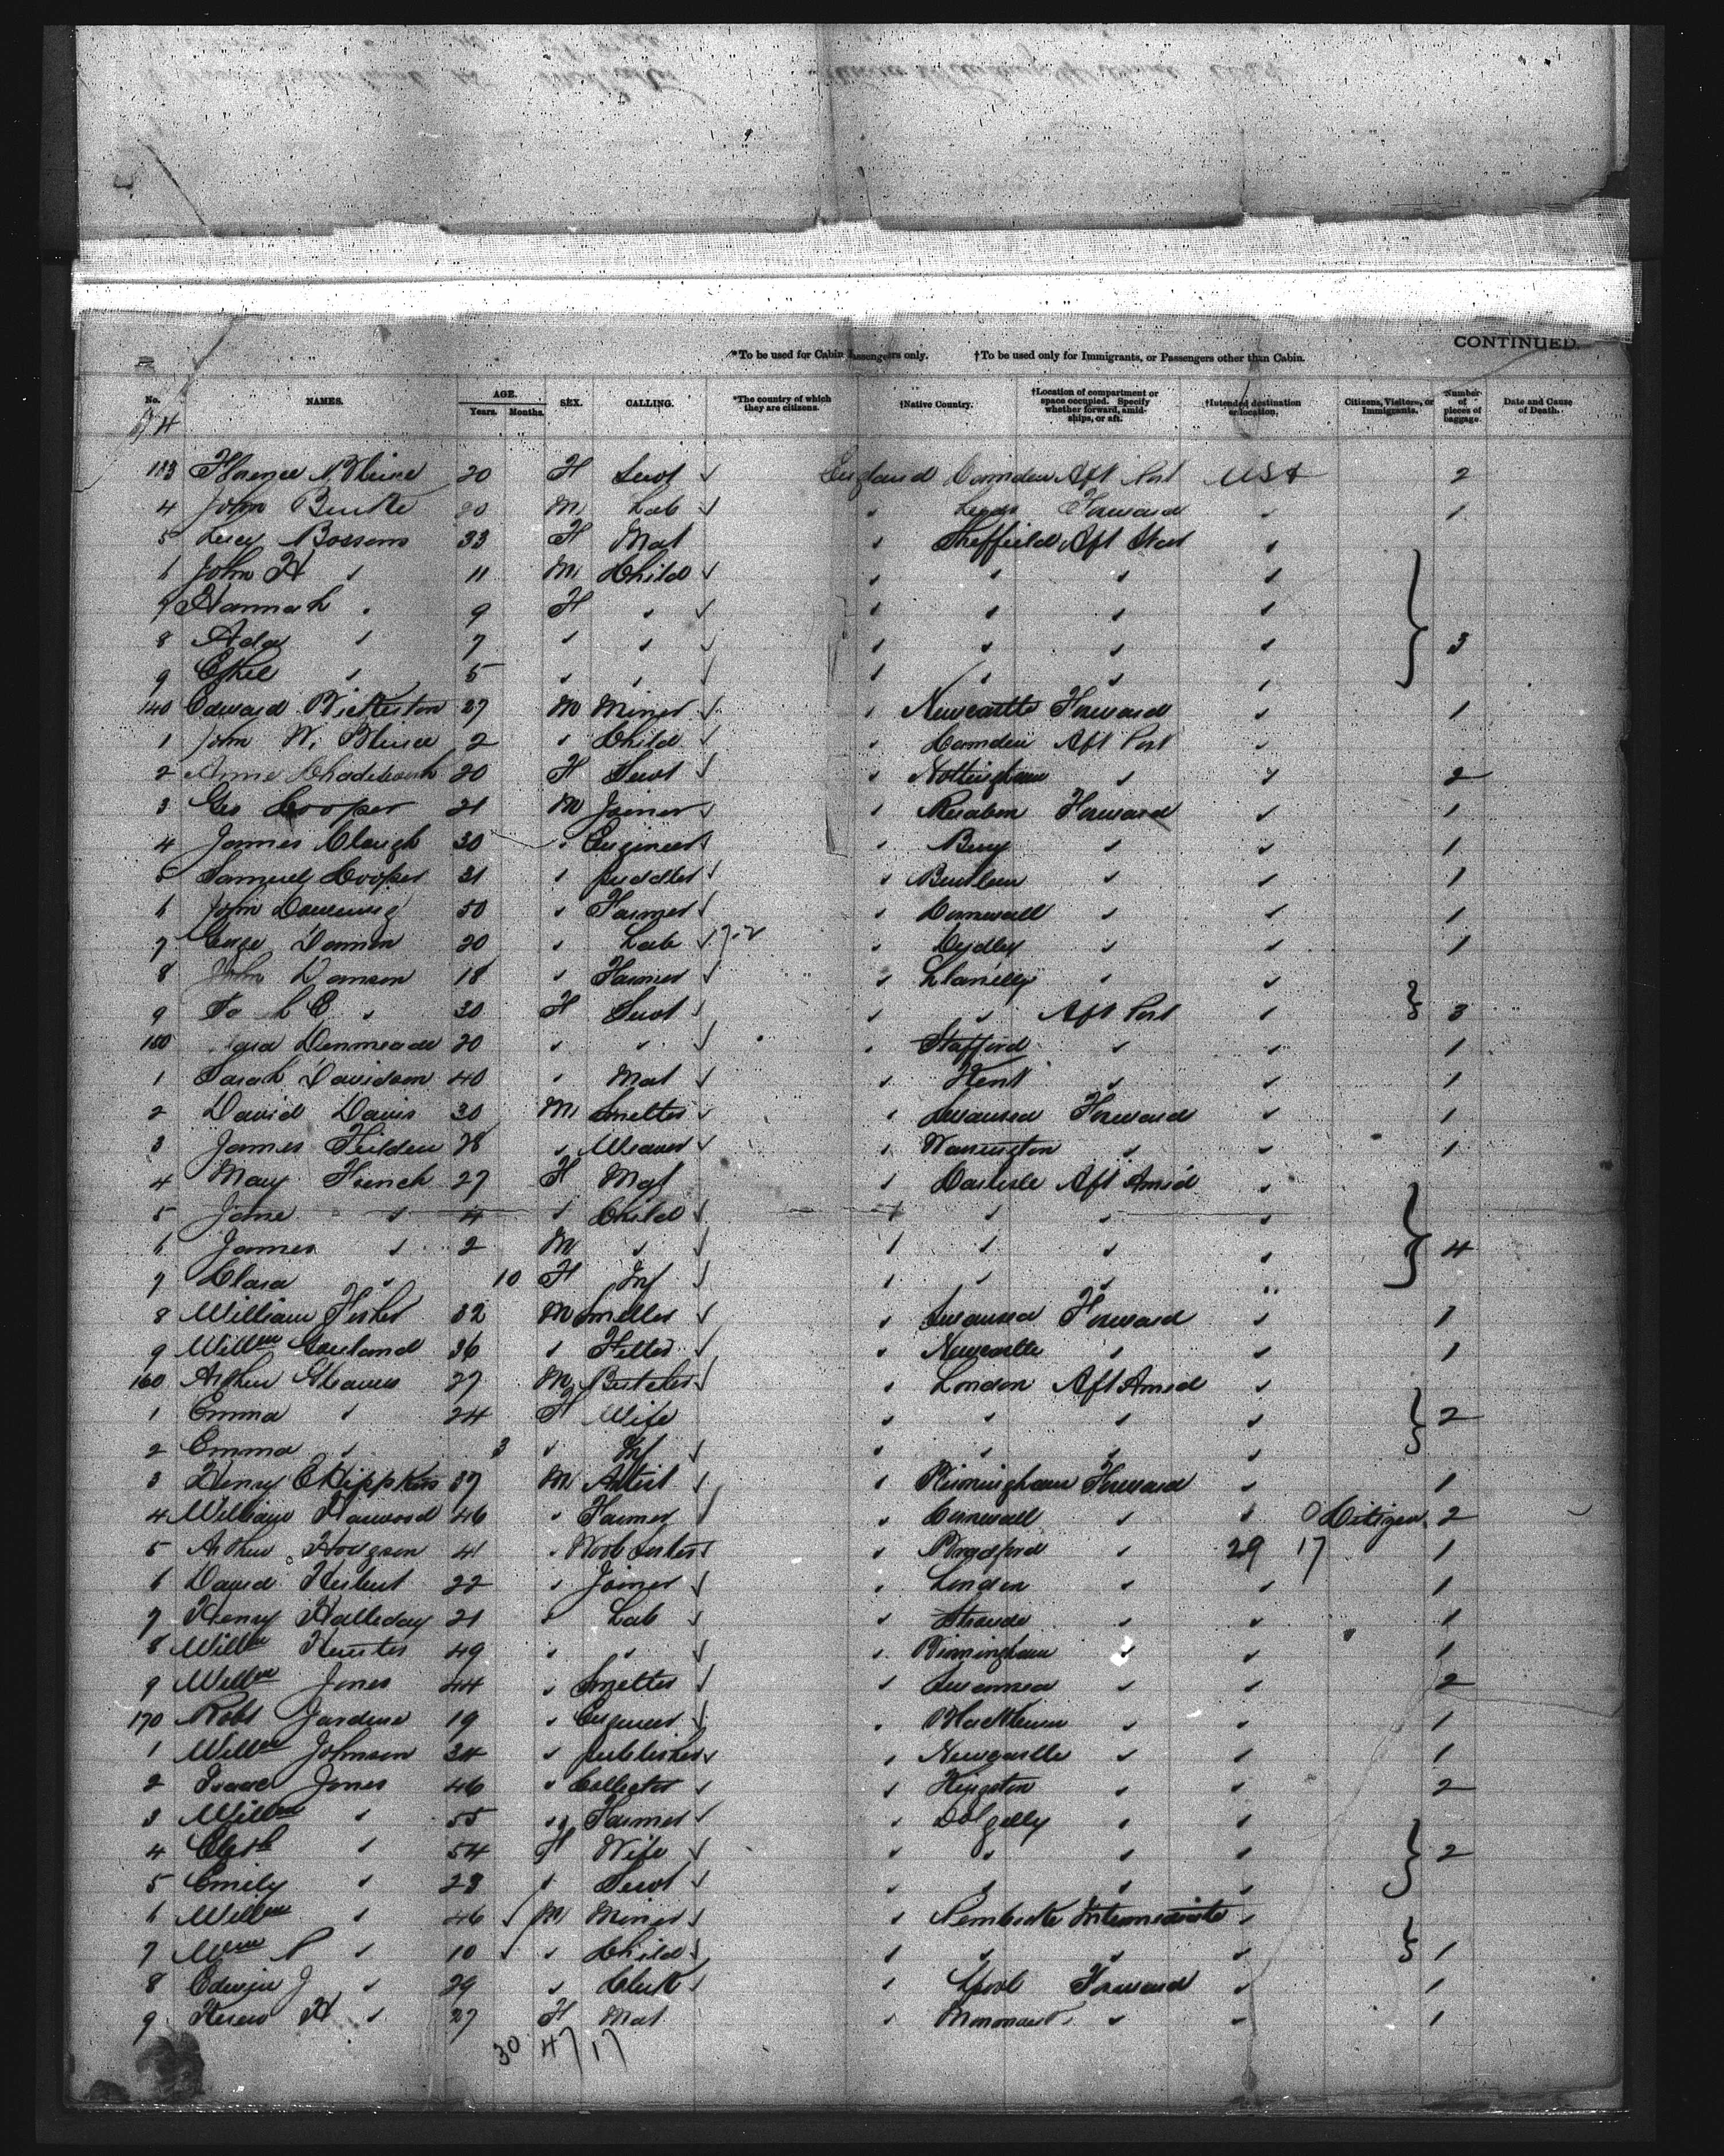 CONTINUED.
*To be used for Cabin Passengers only. †To be used only for Immigrants, or Passengers other than Cabin.
No. NAMES. AGE. Years. Months. SEX. CALLING. *The country of which they are citizens. †Native Country. †Location of compartment or space occupied. Specify whether forward, amidships, or aft. †Intended destination or location. Citizens, Visitors, or Immigrants. Number of pieces of baggage. Date and Cause of Death.
133 Florence 20 F Servt England Camden Aft Port USA 2
4 John Burke M Lab " Leeds Forward " 1
5 Lucy Bossons 33 F Mat " Sheffield Aft "
6 John H " 11 M Child " " " "
7 Hannah " 9 F " " " " "
8 Ada " 7 " " " " " " 3
9 Ethel " 5 " " " " " "
140 Edward Bickerston 27 M Miner " Newcastle Forward " 1
1 John W. 2 " Child " Camden Aft Port "
2 Annie 20 F Servt " Nottingham " " 2
3 Geo Cooper 21 M Joiner " Ruabon Forward " 1
4 James Clough 30 " Engineer " Bury " " 1
5 Samuel Cooper 31 " puddler " " " 1
6 John Downing 50 " Farmer " Cornwall " " 1
7 George 20 " Lab " " " 1
8 John Danson 18 " Farmer " Llanelly " "
9 " 30 F Servt " " Aft Port " 3
150 Denmeade 20 " " " Stafford " " 1
1 Sarah Davidson 40 " Mat " Kent " " 1
2 David Davis 30 M Smelter " Swansea Forward " 1
3 James Feilden 28 " Weaver " Warrington " " 1
4 Mary French 27 F Mat " Carlisle Aft Amid "
5 Jane " 4 " Child " " " "
6 James " 2 M " " " " " 4
7 Clara " 10 F Inf " " " "
8 William Fisher 32 M Smelter " Swansea Forward " 1
9 Willm 36 " Fitter " Newcastle " " 1
160 Arthur Gleaves 27 M Butcher " London Aft Amid "
1 Emma " 24 F Wife " " " " 2
2 Emma " 3 " Inf " " " "
3 Henry 37 M Artist " Birmingham Forward " 1
4 William Harwood 46 " Farmer " Cornwall " " Citizen 2
5 Arthur Hodgson 41 " Wool Sorter " Bradford " 29 17 1
6 David Herbert 22 " Joiner " London " " 1
7 Henry Halleday 21 " Lab " " " 1
8 Willm Hunter 49 " " " Birmingham " " 1
9 Willm Jones 44 " Smelter " Swansea " " 2
170 Robt Jardine 19 " Engineer " Blackburn " " 1
1 Willm Johnson 34 " publisher " Newcastle " " 1
2 Isaac Jones 46 " Collector " Kingston " " 2
3 Willm " 55 " Farmer " Dolgelly " "
4 Elizth " 54 F Wife " " " " 2
5 Emily " 23 " Servt " " " "
6 Willm " 46 M Miner " Pembroke Intermediate "
7 Wm P " 10 " Child " " " " 1
8 Edwin J " 29 " Clerk " Lpool Forward " 1
9 H " 27 F Mat " " " 1
30 47 17